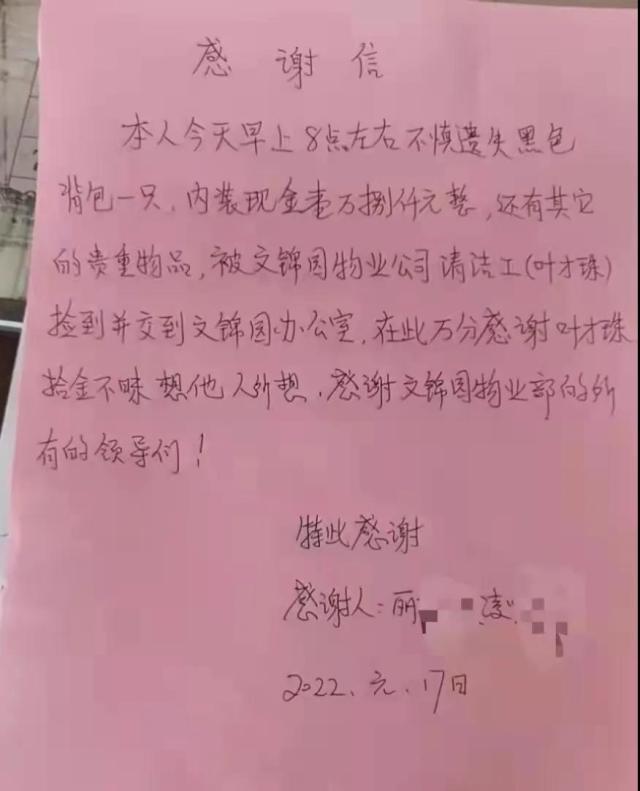 感谢信
本人今天早上8点左右不慎遗失黑包
背包一只，内装现金壹万捌仟元整，还有其它
的贵重物品，被文锦园物业公司清洁工(叶才珠)
捡到并交到文锦园办公室，在此万分感谢叶才珠
拾金不昧想他人所想，感谢文锦园物业部的所
有的领导们！
特此感谢
感谢人：丽 凌
2022、元、17日